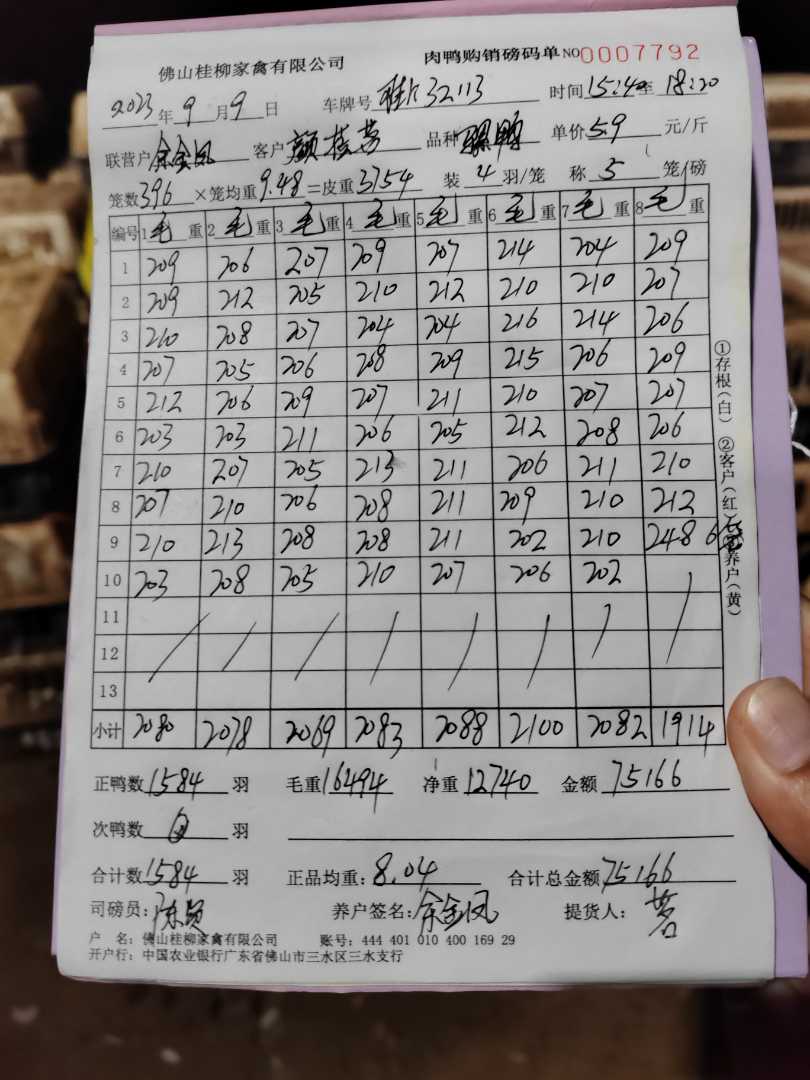 佛山桂柳家禽有限公司 肉鸭购销磅码单 NO 0007792
2023年9月9日 车牌号 桂K32113 时间15:40至18:20
联营户 余金凤 客户 颜桂芳 品种 骡鸭 单价 5.9 元/斤
笼数 396 ×笼均重 9.48 =皮重 3754 装 4 羽/笼 称 5 笼/磅
编号 1 毛 重 2 毛 重 3 毛 重 4 毛 重 5 毛 重 6 毛 重 7 毛 重 8 毛 重
1 209 206 207 209 207 214 204 209
2 209 212 205 210 212 210 210 207
3 210 208 207 204 204 216 214 206
4 207 205 206 208 209 215 206 209
5 212 206 209 207 211 210 207 207
6 203 203 211 206 205 212 208 206
7 210 207 205 213 211 206 211 210
8 207 210 206 208 211 209 210 212
9 210 213 208 208 211 202 210 248 6笼
10 203 208 205 210 207 206 202
11
12
13
小计 2080 2078 2069 2083 2088 2100 2082 1914
①存根(白) ②客户(红) 养户(黄)
正鸭数 1584 羽 毛重 16494 净重 12740 金额 75166
次鸭数 0 羽
合计数 1584 羽 正品均重: 8.04 合计总金额 75166
司磅员: 养户签名: 余金凤 提货人:
户 名: 佛山桂柳家禽有限公司 账号: 444 401 010 400 169 29
开户行: 中国农业银行广东省佛山市三水区三水支行